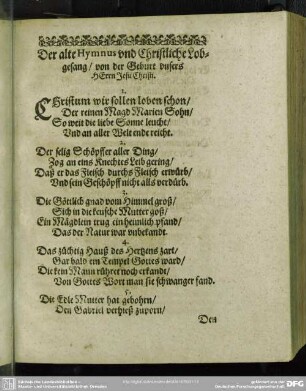 Der alte Hymnus vnd Christliche Lob-
gesang/ von der Geburt vnsers
HErrn Jesu Christi.
1.
CHristum wir sollen loben schon/
Der reinen Magd Marien Sohn/
So weit die liebe Sonne leucht/
Vnd an aller Welt ende reicht.
2.
Der selig Schöpffer aller Ding/
Zog an eins Knechtes Leib gering/
Daß er das Fleisch durchs Fleisch erwürb/
Vnd sein Geschöpff nicht alls verdürb.
3.
Die Göttlich gnad vom Himmel groß/
Sich in die keusche Mutter goß/
Ein Mägdlein trug ein heimlich pfand/
Das der Natur war vnbekandt.
4.
Das züchtig Hauß des Hertzens zart/
Gar bald ein Tempel Gottes ward/
Die kein Mann rühret noch erkandt/
Von Gottes Wort man sie schwanger fand.
5.
Die Edle Mutter hat gebohrn/
Den Gabriel verhieß zuvorn/
Den